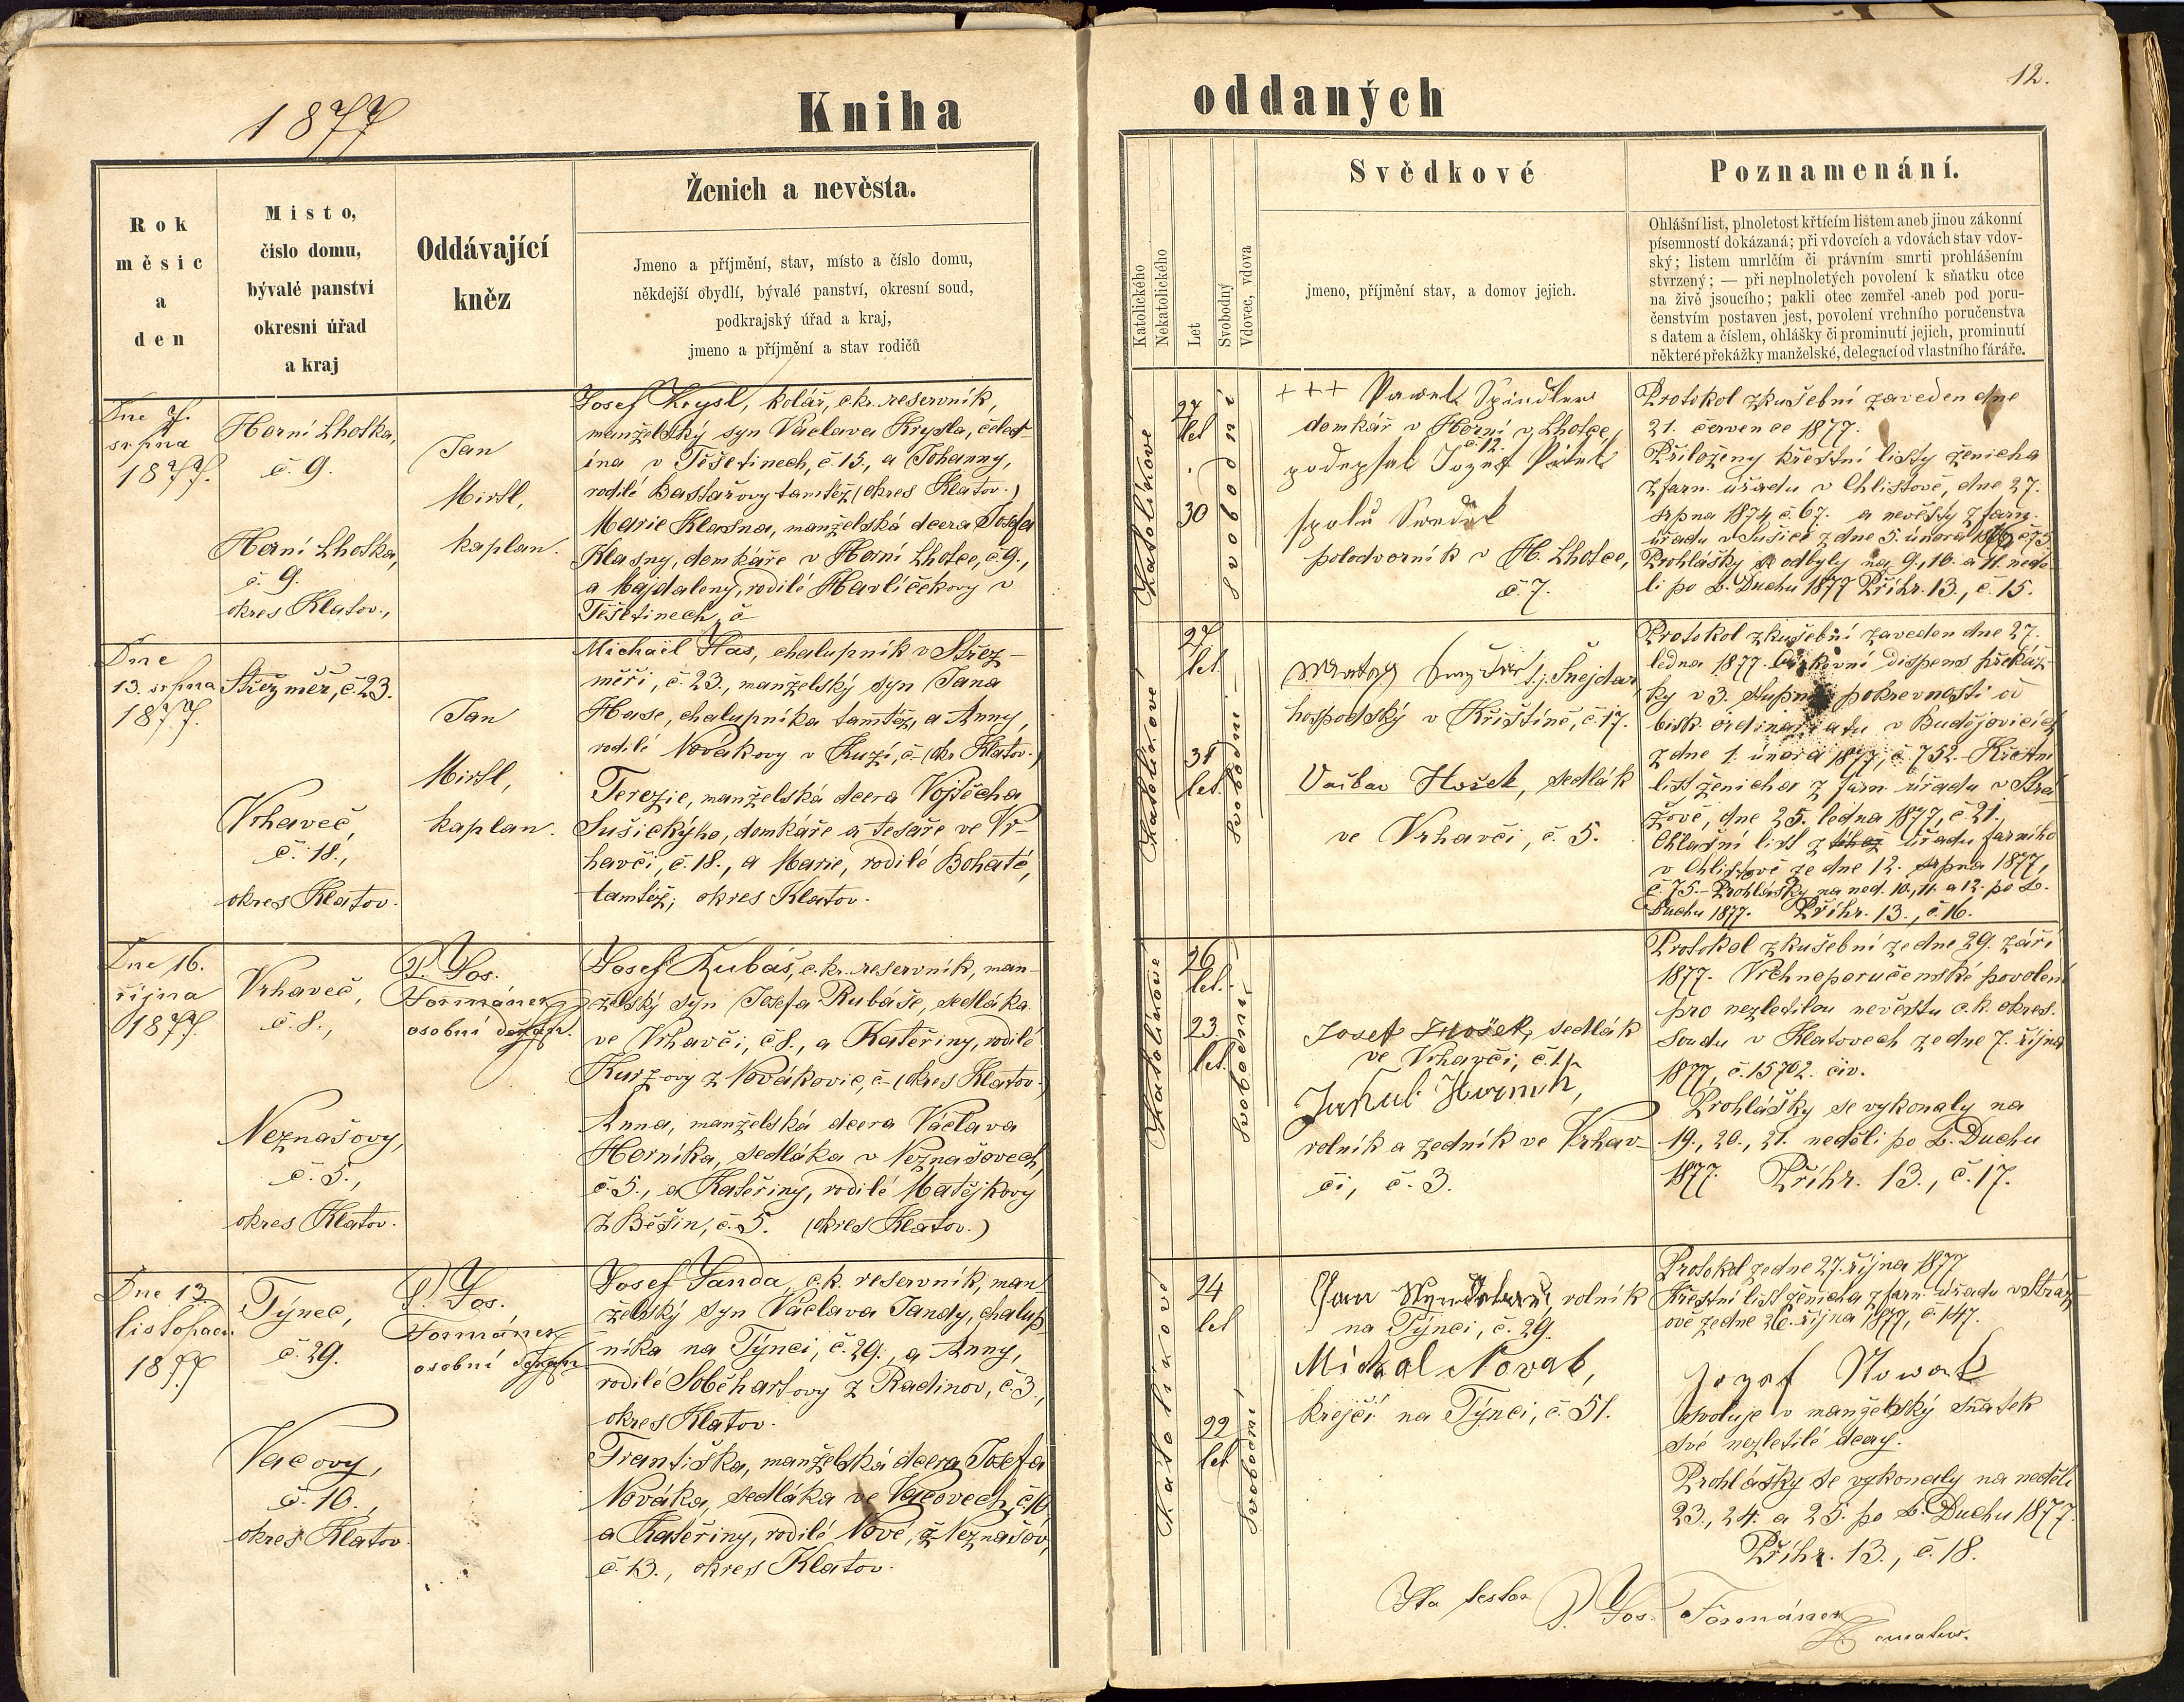 1877
Kniha
oddaných
12.
Rok
měsic
a
den
Misto,
čislo domu,
bývalé panstvi
okresni úřad
a kraj
Oddávající
kněz
Ženich a nevěsta.
Jmeno a příjmění, stav, místo a číslo domu,
někdejší obydlí, bývalé panství, okresní soud,
podkrajský úřad a kraj,
jmeno a příjmění a stav rodičů
Katolického
Nekatolického
Let
Svobodný
Vdovec, vdova
Svědkové
jmeno, příjmění stav, a domov jejich.
Poznamenání.
Ohlášní list, plnoletost křtícím listem aneb jinou zákonní
písemností dokázaná; při vdovcích a vdovách stav vdov-
ský; listem umrlčím či právním smrti prohlášením
stvrzený; — při neplnoletých povolení k sňatku otce
na živě jsoucího; pakli otec zemřel aneb pod poru-
čenstvím postaven jest, povolení vrchního poručenstva
s datem a číslem, ohlášky či prominutí jejich, prominutí
některé překážky manželské, delegací od vlastního fáráře.
Dne 7.
srpna
1877.
Horní Lhotka,
č. 9.
Horní Lhotka,
č. 9.
okres Klatov.,
Jan
Mirtl,
kaplan.
Josef Krysl, kolář, c.kr. reservník,
manželský syn Václava Krysla, čeled-
ína v Těšetinech, č. 15., a Johanny,
rodilé Bastařovy tamtéž (okres Klatov.)
Marie Klasna, manželská dcera Josefa
Klasny, domkáře v Horní Lhotce, č. 9.,
a Majdaleny, rodilé Havlíčekovy v
Těšetinech, č
Katolíkové
27
let
30
svobodní
+++ Pawel Spindler
domkář v Horní v Lhotce,
č. 12.
podepsal Jozef Pátek
spolu Swedek
polodvorník v H. Lhotce,
č. 7.
Protokol zkušební zaveden dne
21. července 1877.
Přiloženy křestní listy ženicha
z farn. úřadu v Chlistově, dne 27.
srpna 1874 č. 67. a nevěsty z farn.
úřadu v Sušici z dne 5. února
Prohlášky se odbyly na 9., 10. a 11. nedě-
li po s. Duchu 1877 Příhr. 13., č. 15.
Dne
13. srpna
1877.
Střezměř, č. 23.
Vrhaveč,
č. 18.,
okres Klatov.
Jan
Mirtl,
kaplan.
Michail Has, chalupník v Střez-
měři, č. 23., manželský syn Jana
Hase, chalupníka tamtéž, a Anny,
rodilé Novákovy v Kuzí, č– (okr. Klatov.)
Terezie, manželská dcera Vojtěcha
Sušickýho, domkáře a tesaře ve Vr-
havči, č. 18., a Marie, rodilé Bohaté,
tamtéž; okres Klatov.
Katolíkové
27
let
31
let.
svobodní
t.j. Šnejdar
hospodský v Křištíně, č. 17.
Hošek, sedlák
ve Vrhavči, č. 5.
Protokol zkušební zaveden dne 27.
ledna 1877. Církevní dispens překáž-
ky v 3. stupni pokrevnosti od
bisk. ordinariatu v Budějovicích
z dne 1. února 1877, č. 752. – Křestní
list ženicha z farn. úřadu v Strá-
žově, dne 25. ledna 1877, č. 21.
Ohlašní list z téhož úřadu farního
v Chlistově ze dne 12. srpna 1877,
č. 75. – Prohlášky na ned. 10., 11. a 12. po s.
Duchu 1877. Příhr. 13., č. 16.
Dne 16.
října
1877.
Vrhaveč,
č. 8.,
Neznašovy,
č. 5.,
okres Klatov.
P. Jos.
Formánek
osobní děkan.
Josef Rubáš, c. kr. reservník, man-
želský syn Josefa Rubáše, sedláka
ve Vrhavči, č. 8., a Kateřiny, rodilé
Kurzovy z Novákovic, č– (okres Klatov.)
Anna, manželská dcera Václava
Horníka, sedláka v Neznašovech,
č. 5., a Kateřiny, rodilé Matějkovy
z Běšin, č. 5. (okres Klatov.)
Katolíkové
26
let.
23.
let.
svobodní
Josef Hošek, sedlák
ve Vrhavči, č. 1.
Jakub Hornik,
rolník a zedník ve Vrhav-
či, č. 3.
Protokol zkušební ze dne 29. září
1877. Vrchnoporučenské povolení
pro nezletilou nevěstu c.k. okres.
soudu v Klatovech ze dne 7. října
1877, č. 15702. civ.
Prohlášky se vykonaly na
19., 20., 21. neděli po s. Duchu
1877. Příhr. 13., č. 17.
Dne 13.
listopadu
1877
Týnec,
č. 29.
Vacovy,
č. 10.,
okres Klatov.
P. Jos.
Formánek
osobní děkan
Josef Janda, c.k. reservník, man-
želský syn Václava Jandy, chalup-
níka na Týnci, č. 29., a Anny,
rodilé Soběhartovy z Radinov, č. 3.,
okres Klatov.
Františka, manželská dcera Josefa
Nováka, sedláka ve Vacovech, č. 10,
a Kateřiny, rodilé Nové, z Neznašov,
č. 13., okres Klatov.
Katolíkové
24
let
22
let
svobodní
Jan rolník
na Týnci, č. 29.
Michal Novak,
krejčí na Týnci, č. 51.
Protokol ze dne 27. října 1877
Křestní list ženicha z farn. úřadu v Stráž-
ově ze dne 26. října 1877, č. 147.
Jozef Nowak
svoluje v manželský sňatek
své nezletilé dcery.
Prohlášky se vykonaly na neděli
23., 24. a 25. po s. Duchu 1877.
Příhr. 13., č. 18.
Ita testor P. Jos. Formánek